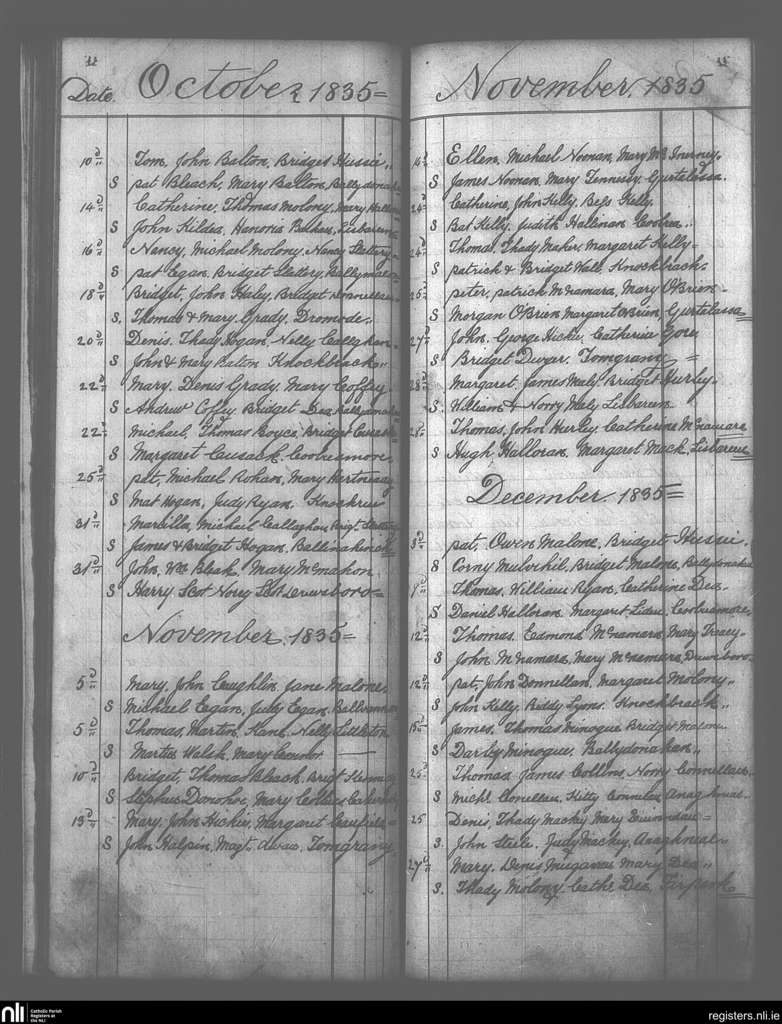 11
Date. October 1835=
10 Tom, John Balton, Bridget Hussie
S pat Bleach, Mary Balton,
14 Catherine, Thomas Molony, Mary
S John Kildea, Hanoria
16 Nancy, Michael Molony, Nancy Slattery
S pat Egan, Bridget Slattery,
18 Bridget, John Haly, Bridget Donnellan
S. Thomas & Mary Grady, Dromode
20 Denis, Thady Hogan, Nelly Callaghan
S John & Mary Balton Knockbrack
22 Mary, Denis Grady, Mary Coffey
S Andrew Coffey Bridget Dea
22 Michael, Thomas Boyce, Bridget Cusack
S Margaret Cusack, Coolreamore
25 pat, Michael Rohan, Mary
S Mat Hogan, Judy Ryan,
31 Marcilla, Michael Callaghan,
S James & Bridget Hogan,
31 John, Wm Bleak, Mary McMahon
S Harry Scot Norry Scot
November 1835=
5 Mary, John Coughlin, Jane Malone
S Michael Egan, Judy Egan,
5 Thomas, Martin Kane, Nelly Littleton
S Martin Walsh, Mary Connor
10 Bridget, Thomas Bleach,
S Stephen Donohoe, Mary Collins
13 Mary, John Hickie, Margaret Canfield
S John Halpin, Magt. Tomgrany
11
November. 1835
Ellen, Michael Noonan, Mary McInerney
S James Noonan, Mary Gurtelassa
24 Catherine, John Kelly, Bess Kelly
S Bat Kelly, Judith Hallinan Coolrea
24 Thomas, Thady Maher, Margaret Kelly=
S patrick & Bridget Wall, Knockbrack
25 peter, patrick McNamara, Mary O'Brien
S Morgan O'Brien, Margaret OBrien, Gurtelassa
27 John, George Hickie, Catherine Gore
S Bridget Dwyar, Tomgrany =
28 Margaret, James Maly, Bridget Hurley
S. William & Norry Maly Lisbareen
28 Thomas, John Hurley, Catherine McNamara
S Hugh Halloran, Margaret Mack, Lisbareen
December 1835=
3 pat, Owen Malone, Bridget Hussie.
S Corny Mulvihil, Bridget Malone,
Thomas, William Ryan, Catherine Dea
S Daniel Halloran, Margaret Coolreamore
12 Thomas, Edmond McNamara, Mary Treacy
S John McNamara, Mary McNamara,
12 pat, John Donnellan, Margaret Molony
S John Kelly, Biddy Lyons, Knockbrack
15 James, Thomas Minogue Bridget Malone
S Darby Minogue, Ballydonahan
25 Thomas, James Collins, Norry Connellan
S Michl. Conellan, Kitty Connellan
25 Denis, Thady Mackey Mary
S. John Steele, Judy Mackey,
27 Mary, Denis Mary Dea
S. Thady Molony, Cathe Dea,
nli
Catholic Parish
Registers at
the NLI
registers.nli.ie